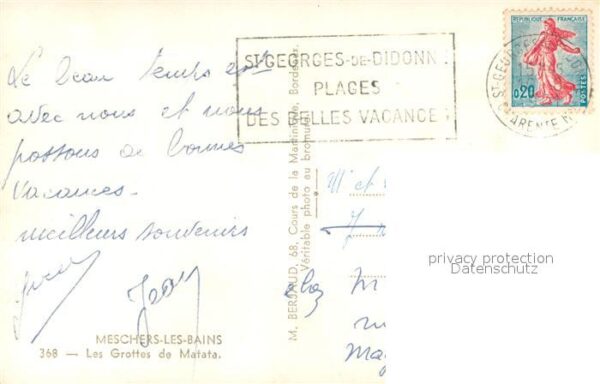 Le beau temps est
avec nous et nous
passons de bonnes
vacances.
meilleurs souvenirs
MESCHERS-LES-BAINS
368 — Les Grottes de Matata.
M. BERJAUD, 68, Cours de la Martinique, Bordeaux.
Véritable photo au bromure
ST-GEORGES-DE-DIDONN
PLAGES
DES BELLES VACANCE
REPUBLIQUE FRANÇAISE
0,20
POSTES
M et
chez M
privacy protection
Datenschutz